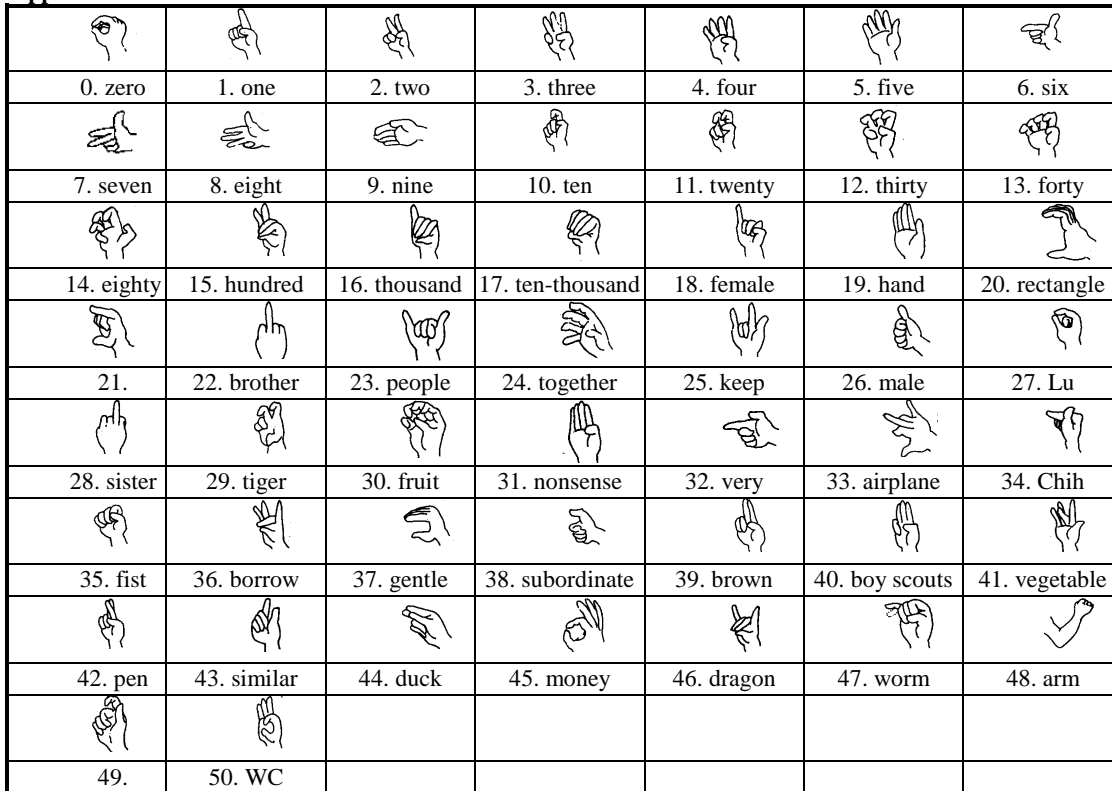 0. zero 1. one 2. two 3. three 4. four 5. five 6. six
7. seven 8. eight 9. nine 10. ten 11. twenty 12. thirty 13. forty
14. eighty 15. hundred 16. thousand 17. ten-thousand 18. female 19. hand 20. rectangle
21. 22. brother 23. people 24. together 25. keep 26. male 27. Lu
28. sister 29. tiger 30. fruit 31. nonsense 32. very 33. airplane 34. Chih
35. fist 36. borrow 37. gentle 38. subordinate 39. brown 40. boy scouts 41. vegetable
42. pen 43. similar 44. duck 45. money 46. dragon 47. worm 48. arm
49. 50. WC